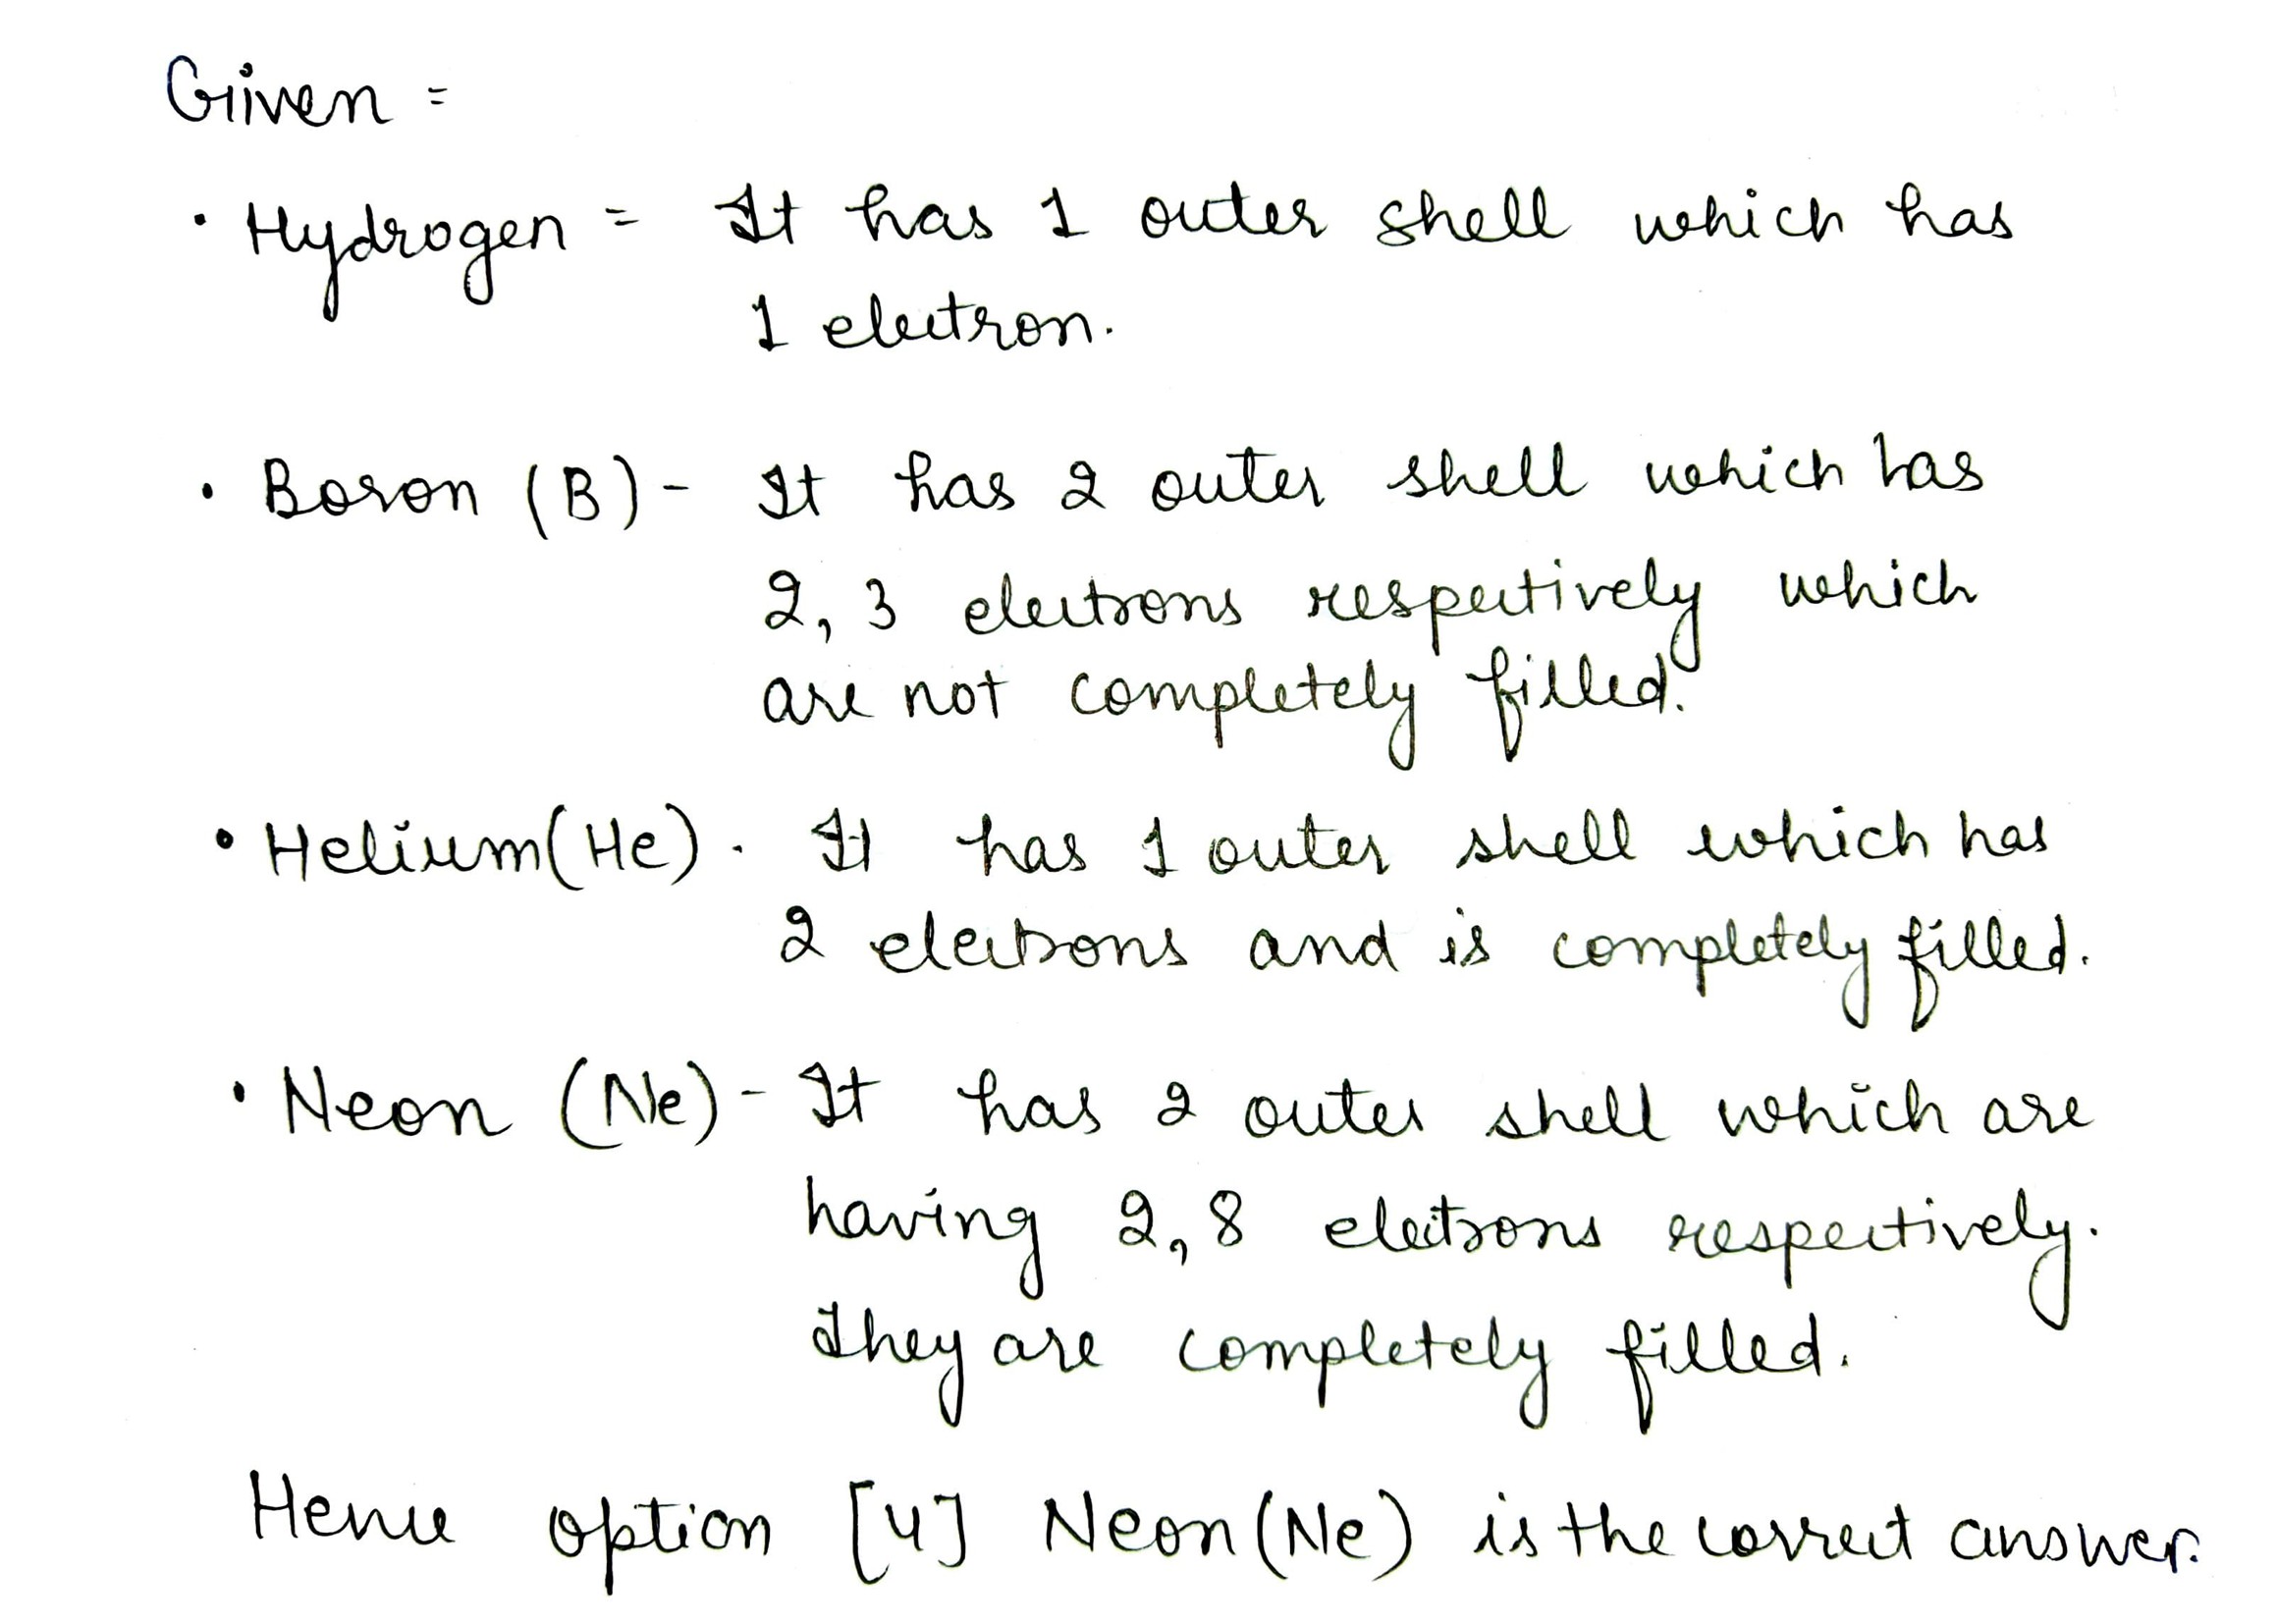 Given =
• Hydrogen = It has 1 outer shell which has
1 electron.
• Boron (B) - It has 2 outer shell which has
2, 3 electrons respectively which
are not completely filled.
• Helium(He). It has 1 outer shell which has
2 electrons and is completely filled.
• Neon (Ne) - It has 2 outer shell which are
having 2, 8 electrons respectively.
They are completely filled.
Hence option [4] Neon(Ne) is the correct answer.